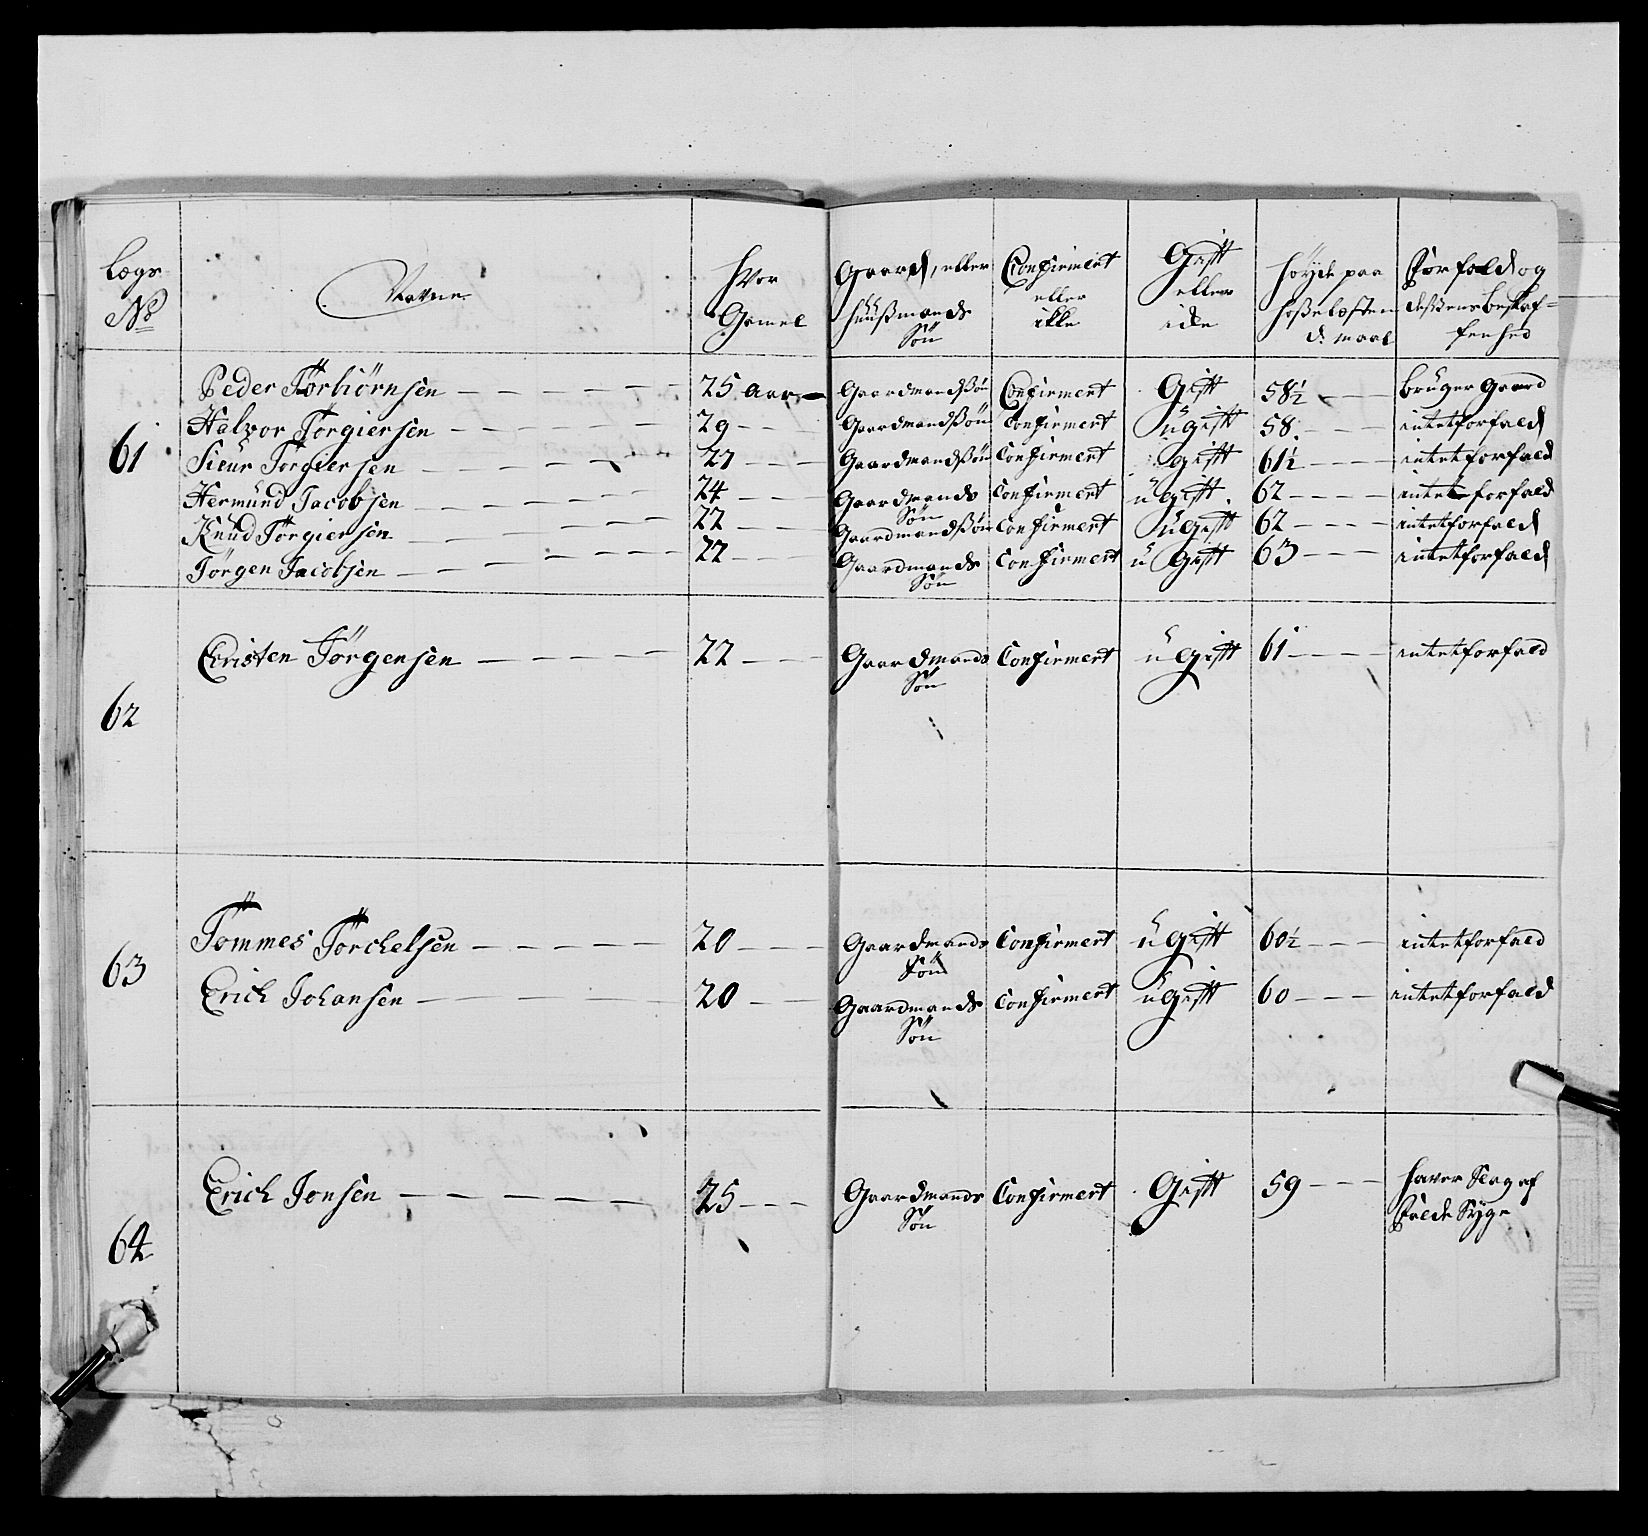 Lægs No | Navne | Hvor Gamel | Gaard, eller Huusmands Søn | Confirmert eller ikke | Gift eller ide | Høyde paa Hoßelæsten d: maal | Forfald og deßens beskaffenhed
61
Peder Torbiörnsen | 25 Aar | Gaardmandßøn | Confirmert | Gift | 58½ | bruger Gaard
Halvor Torgiersen | 29 | Gaardmandßøn | Confirmert | ugift | 58 | intet forfald
Siеur Torgiersen | 27 | Gaardmandßøn | Confirmert | ugift | 61½ | intet forfald
Hermund Jacobsen | 24 | Gaardmands Søn | Confirmert | ugift | 62 | intet forfald
Knud Torgiersen | 22 | Gaardmandßøn | Confirmert | ugift | 62 | intet forfald
Jörgen Jacobsen | 22 | Gaardmands Søn | Confirmert | ugift | 63 | intet forfald
62
Cristen Jörgensen | 22 | Gaardmands Søn | Confirmert | ugift | 61 | intet forfald
63
Tommes Torchelsen | 20 | Gaardmands Søn | Confirmert | ugift | 60½ | intet forfald
Erich Johansen | 20 | Gaardmands Søn | Confirmert | ugift | 60 | intet forfald
64
Erich Jonsen | 25 | Gaardmands Søn | Confirmert | Gift | 59 | haver Slag af Falde Syge